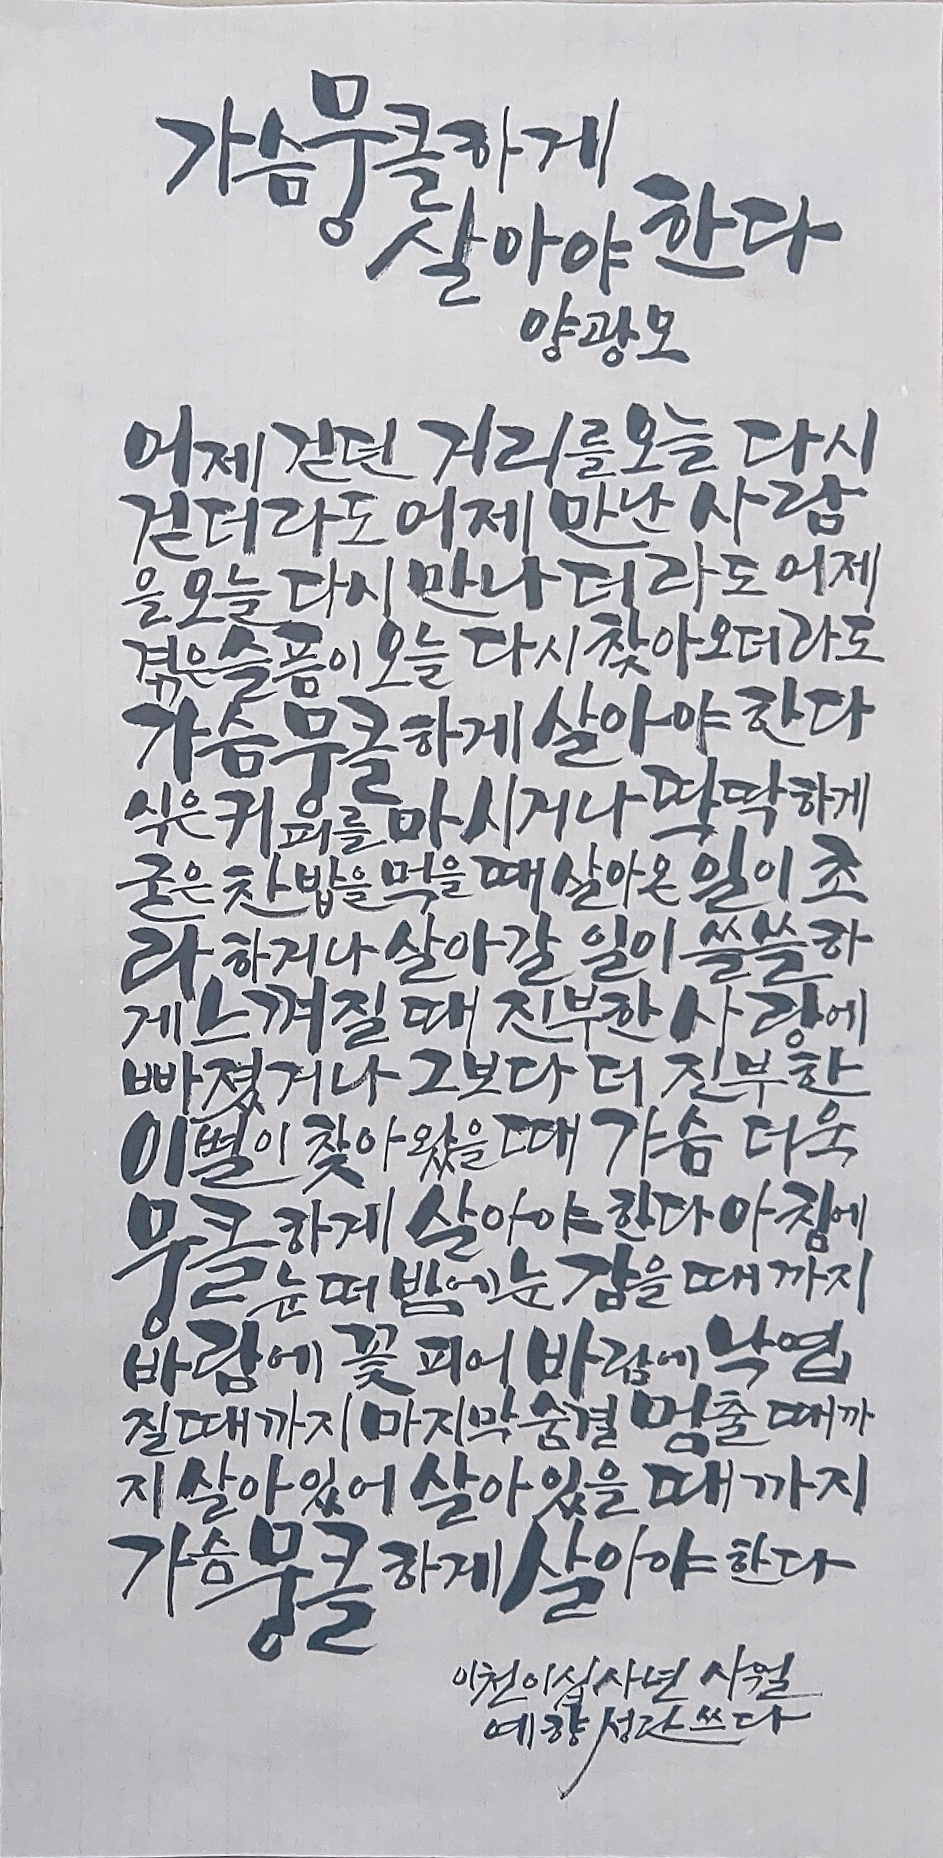 가슴뭉클하게
살아야 한다
양광모
어제 걷던 거리를 오늘 다시
걷더라도 어제 만난 사람
을 오늘 다시 만나더라도 어제
겪은 슬픔이 오늘 다시 찾아오더라도
가슴뭉클하게 살아야 한다
식은 커피를 마시거나 딱딱하게
굳은 찬밥을 먹을 때 살아온 일이 초
라하거나 살아갈 일이 쓸쓸하
게 느껴질 때 진부한 사랑에
빠졌거나 그보다 더 진부한
이별이 찾아왔을 때 가슴 더욱
뭉클하게 살아야 한다 아침에
눈 떠 밤에 눈 감을 때까지
바람에 꽃 피어 바람에 낙엽
질 때까지 마지막 숨결 멈출 때까
지 살아있어 살아있을 때까지
가슴뭉클하게 살아야 한다
이천이십사년 사월
예향 성란 쓰다